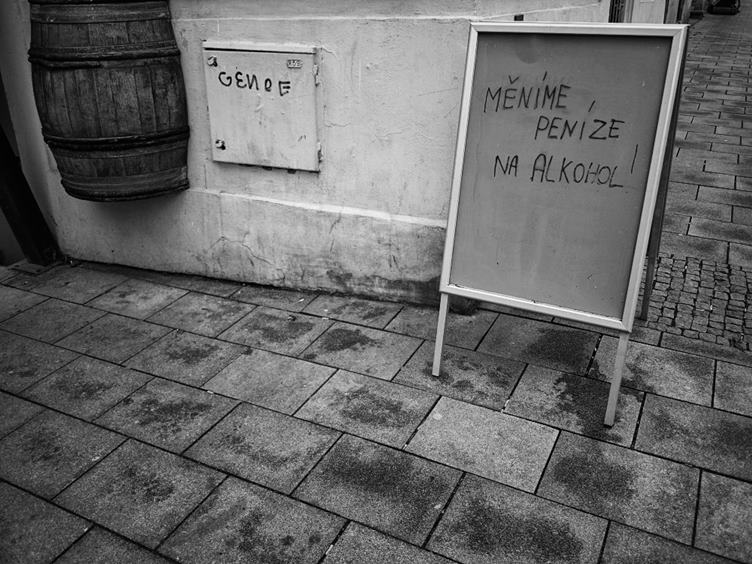 GENOE
MĚNÍME
PENÍZE
NA ALKOHOL!